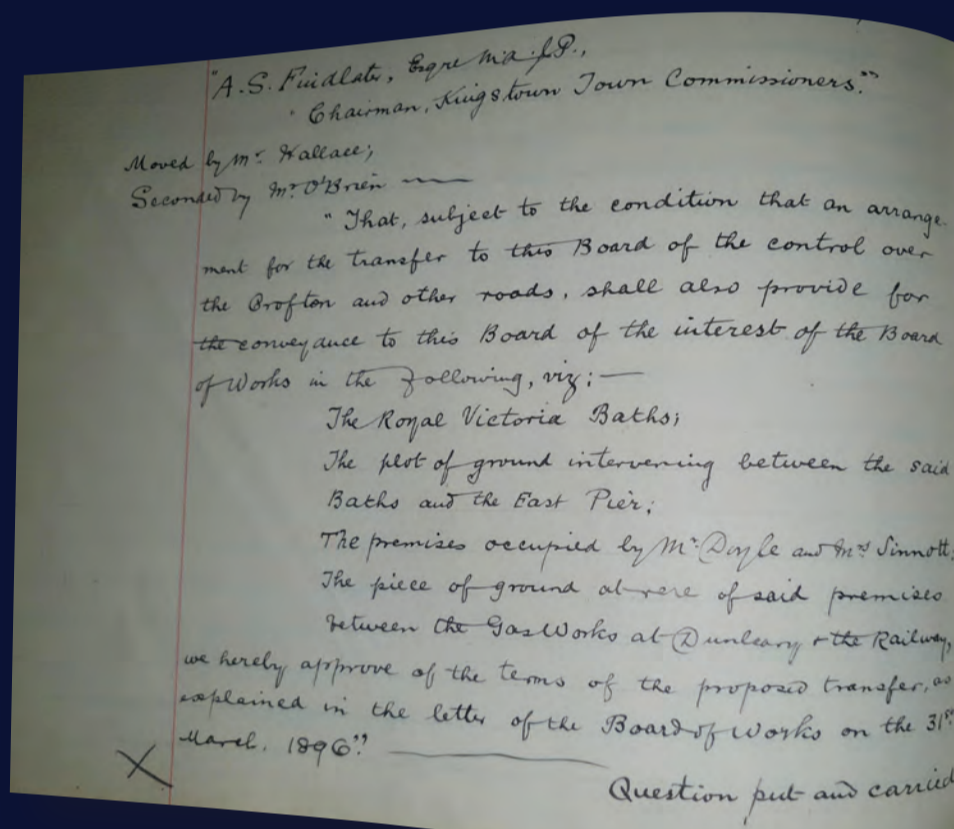 "A.S. Findlater, Esqre M.A. J.P.,
Chairman, Kingstown Town Commissioners."
Moved by Mr. Wallace;
Seconded by Mr. O'Brien
"That, subject to the condition that an arrange-
ment for the transfer to this Board of the control over
the Crofton and other roads, shall also provide for
the conveyance to this Board of the interest of the Board
of Works in the following, viz; —
The Royal Victoria Baths;
The plot of ground intervening between the said
Baths and the East Pier;
The premises occupied by Mr. Doyle and Mrs Sinnott;
The piece of ground at rere of said premises
between the Gas Works at Dunleary & the Railway,
we hereby approve of the terms of the proposed transfer, as
explained in the letter of the Board of Works on the 31st
March. 1896"
X
Question put and carried